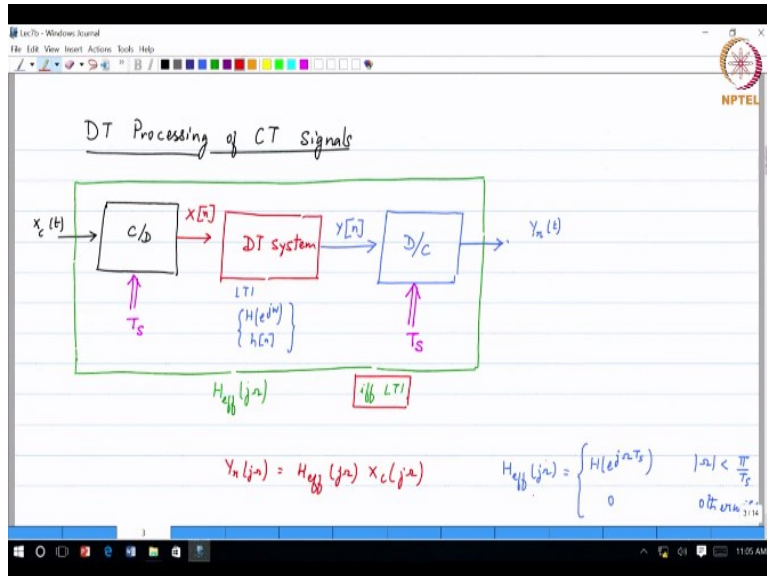 Lec7b - Windows Journal
File Edit View Insert Actions Tools Help
NPTEL
DT Processing of CT Signals
x_c(t)
C/D
x[n]
DT system
y[n]
D/C
Y_r(t)
T_s
LTI
{H(e^{jω})
h[n]}
T_s
H_eff(jΩ)
iff LTI
Y_r(jΩ) = H_eff(jΩ) X_c(jΩ)
H_eff(jΩ) = { H(e^{jΩT_s}) |Ω| < π/T_s
0
3/14
3
11:05 AM